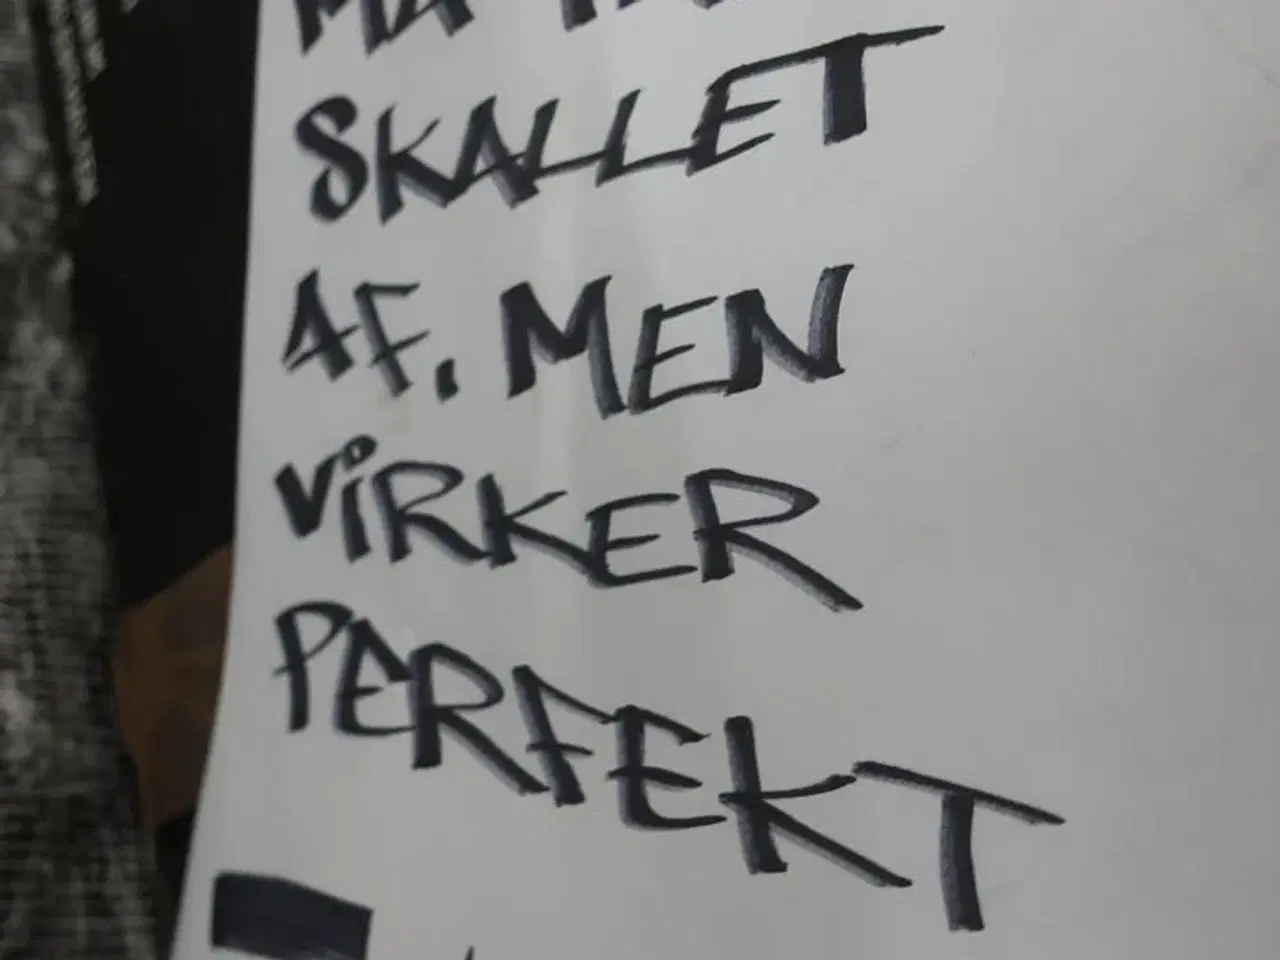 SKALLET
AF. MEN
ViRKER
PERFEKT